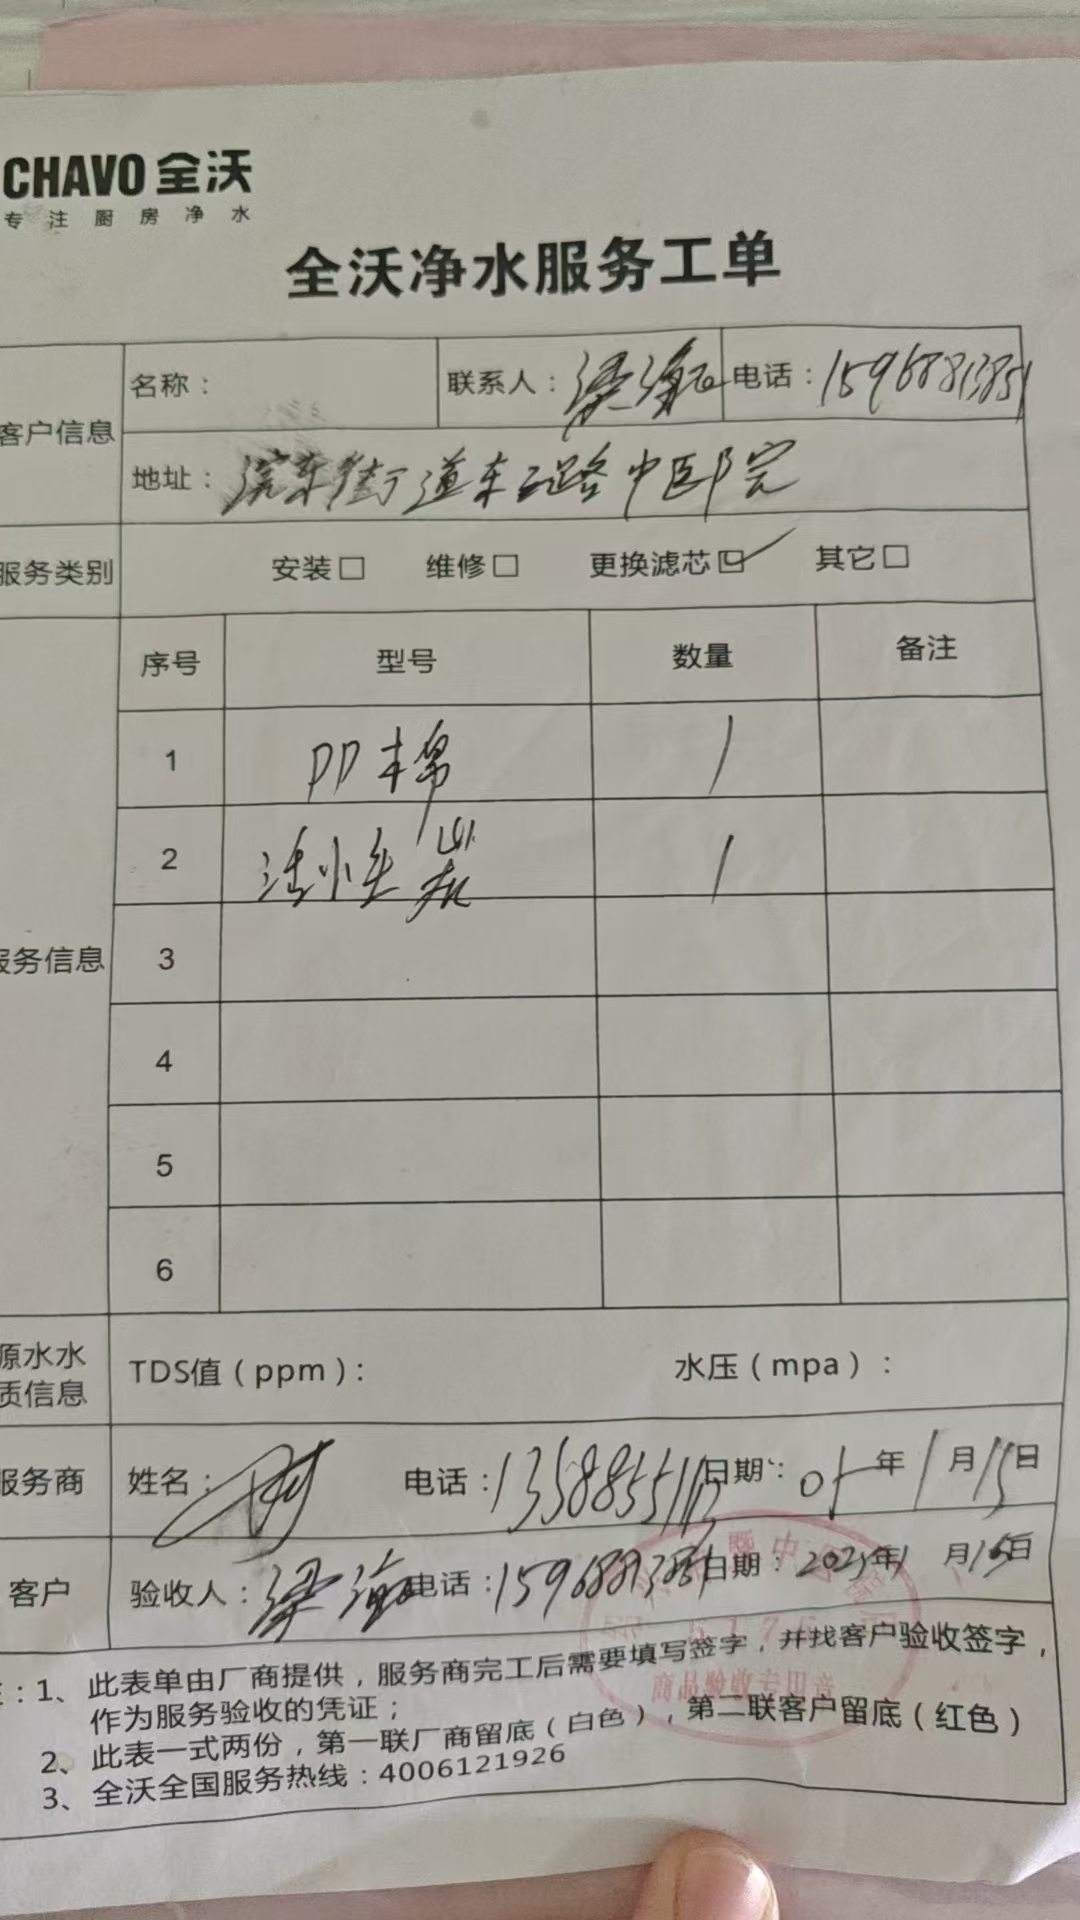 CHAVO 全沃
专注厨房净水
全沃净水服务工单
客户信息 名称： 联系人：梁海 电话：15968813851
地址：滨东街道东三路中医院
服务类别 安装□ 维修□ 更换滤芯☑ 其它□
序号 型号 数量 备注
1 PP棉 1
2 活性炭 1
服务信息 3
4
5
6
源水水质信息 TDS值（ppm）： 水压（mpa）：
服务商 姓名： 电话：13588551113 日期： 年1月15日
客户 验收人：梁海 电话：15968813851 日期：2025年1月15日
商品验收专用章
：1、此表单由厂商提供，服务商完工后需要填写签字，并找客户验收签字，
作为服务验收的凭证；
2、此表一式两份，第一联厂商留底（白色），第二联客户留底（红色）
3、全沃全国服务热线：4006121926